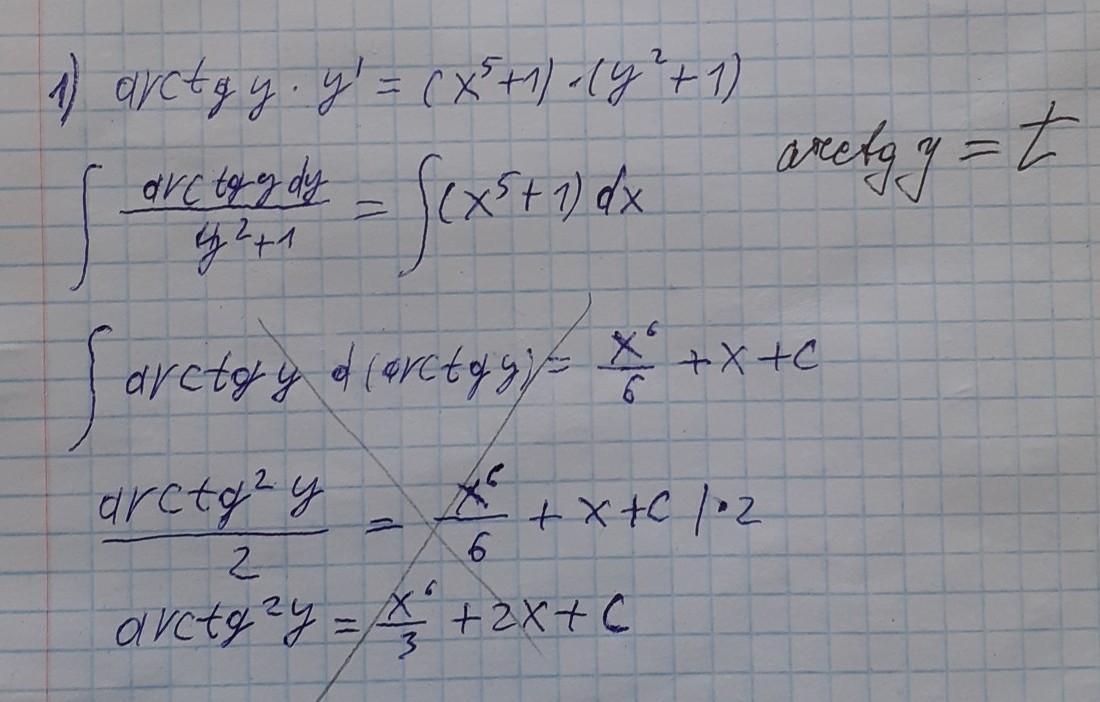 1) arctg y · y' = (x⁵+1) · (y²+1)
∫ arctg y dy / y²+1 = ∫(x⁵+1) dx
arctg y = t
∫ arctg y d(arctg y) = x⁶/6 + x + c
arctg² y / 2 = x⁶/6 + x + c | · 2
arctg² y = x⁶/3 + 2x + C